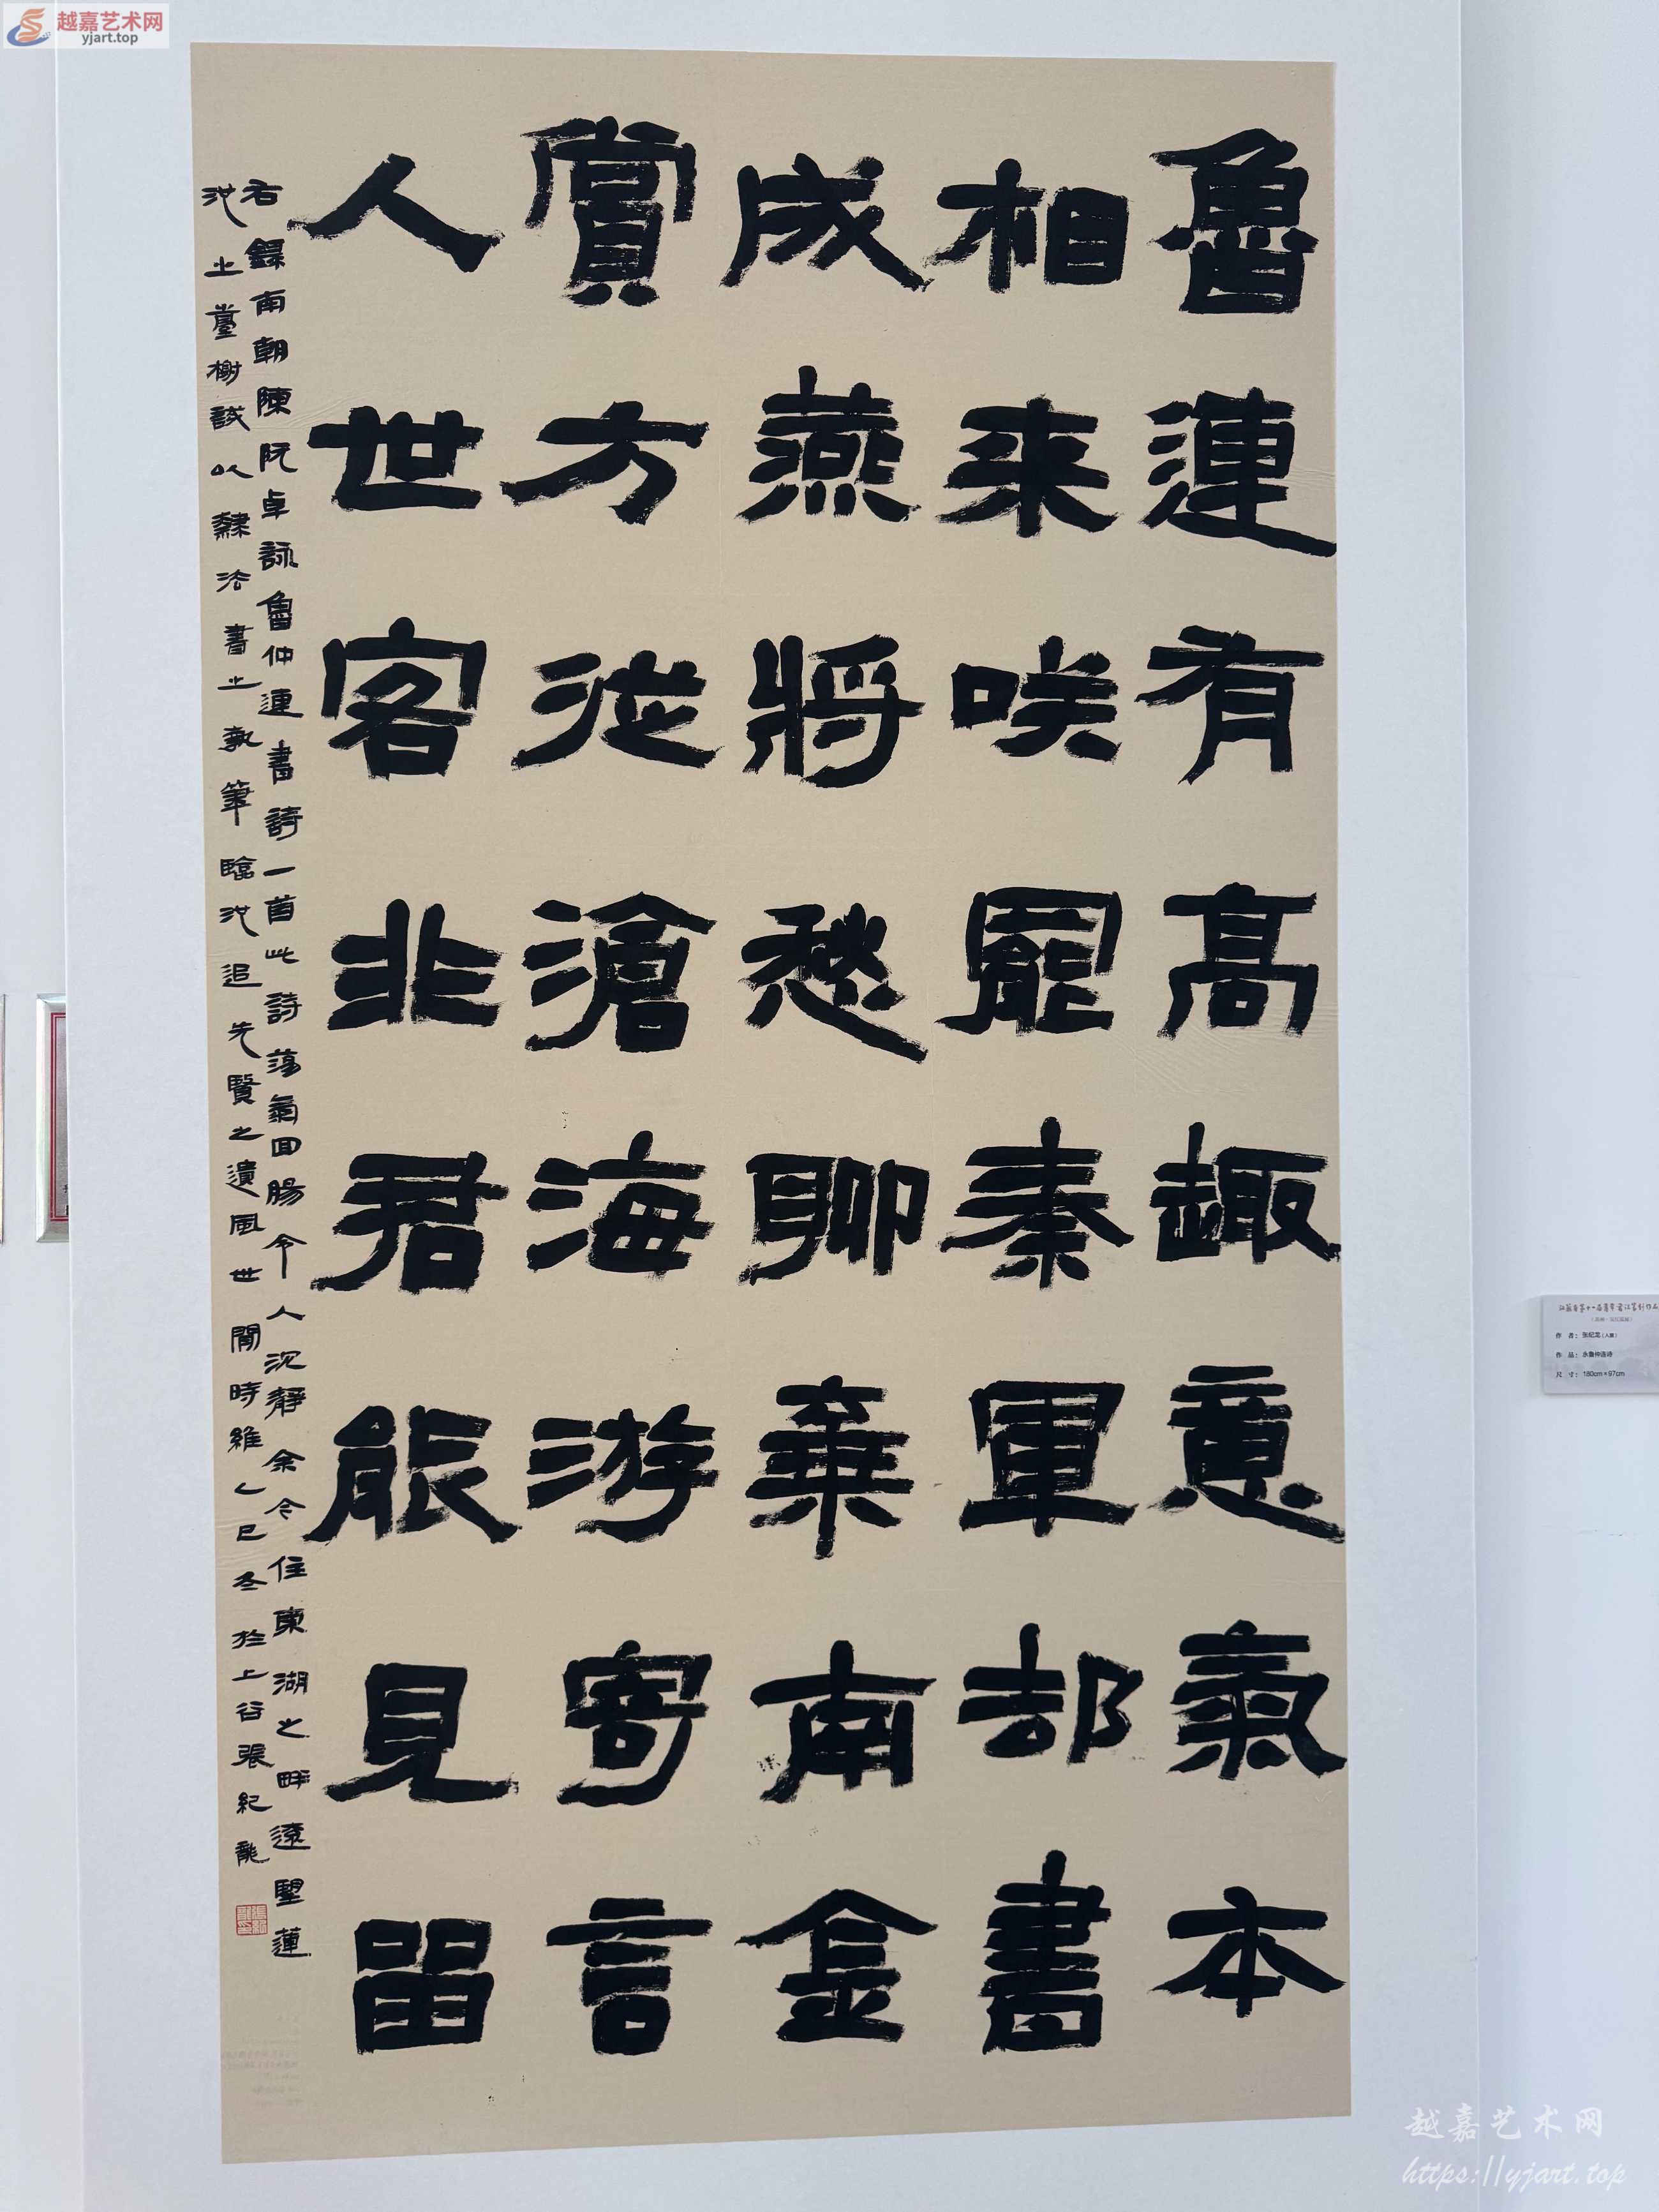 越嘉艺术网
yjart.top
魯連有高趣意氣本
相来咲罷秦軍却書
成燕將愁聊棄南金
賞方從滄海游寄言
人世客非君能見留
右錄南朝陳阮卓詠魯仲連書詩一首此詩蕩氣回腸令人沉靜余今住東湖之畔遠望蓮
池上臺榭試以隸法書之執筆臨池追先賢之遺風世間時維乙巳冬於上谷張紀龍
作 者: 张纪龙(入展)
作 品: 永鲁仲连诗
尺 寸: 180cm×97cm
越嘉艺术网
https://yjart.top